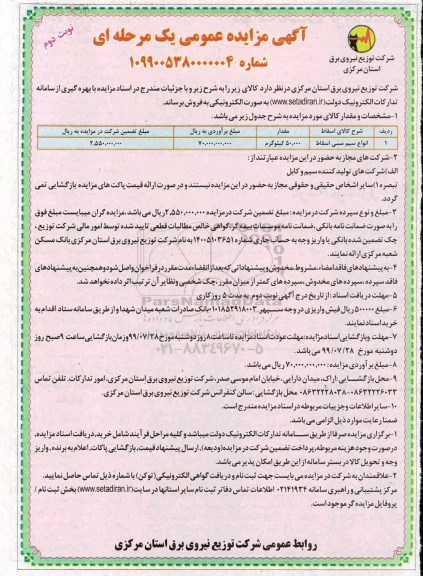 نوبت دوم
آگهی مزایده عمومی یک مرحله ای
شماره ۱۰۹۹۰۰۵۳۸۰۰۰۰۰۰۴
شرکت توزیع نیروی برق
استان مرکزی
شرکت توزیع نیروی برق استان مرکزی درنظر دارد کالای زیر را به شرح زیر و با جزئیات مندرج در اسناد مزایده با بهره گیری از سامانه
تدارکات الکترونیک دولت (www.setadiran.ir) به صورت الکترونیکی به فروش برساند.
۱-مشخصات و مقدار کالای مورد مزایده به شرح جدول زیر می باشد.
ردیف شرح کالای اسقاط مقدار مبلغ برآوردی به ریال مبلغ تضمین شرکت در مزایده به ریال
۱ انواع سیم مسی اسقاط ۵۰،۰۰۰ کیلوگرم ۷۰،۰۰۰،۰۰۰،۰۰۰ ۲،۵۵۰،۰۰۰،۰۰۰
۲-شرکت های مجاز به حضور در این مزایده عبارتند از:
الف) شرکت های تولید کننده سیم و کابل
تبصره ۱) سایر اشخاص حقیقی و حقوقی مجاز به حضور در این مزایده نیستند و در صورت ارائه قیمت پاکت های مزایده بازگشایی نمی
گردد.
۳-مبلغ و نوع سپرده شرکت در مزایده: مبلغ تضمین شرکت در مزایده ۲،۵۵۰،۰۰۰،۰۰۰ ریال می باشد، مزایده گران میبایست مبلغ فوق
را به صورت ضمانت نامه بانکی، ضمانت نامه موسسات بیمه گر، گواهی خالص مطالبات قطعی تایید شده توسط امور مالی شرکت توزیع،
چک تضمین شده بانکی یا واریز وجه به حساب جاری شماره ۱۴۰۰۵۱۰۳۶۵۱ به نام شرکت توزیع نیروی برق استان مرکزی بانک مسکن
شعبه مرکزی ارائه نمایند.
۴-به پیشنهادهای فاقد امضاء، مشروط، مخدوش و پیشنهاداتی که بعد از انقضا مدت مقرر در فراخوان واصل شود و همچنین به پیشنهادهای
فاقد سپرده، سپرده های مخدوش، سپرده های کمتر از میزان مقرر، چک شخصی و نظایر آن ترتیب اثر داده نخواهد شد.
۵-مهلت دریافت اسناد: از تاریخ درج آگهی نوبت دوم به مدت ۵ روز کاری
۶-مبلغ ۵۰۰۰۰۰ ریال فیش واریزی در وجه سپهر ۰۱۰۱۸۵۲۹۱۸۰۰۲ بانک صادرات شعبه میدان شهدا و از طریق سامانه ستاد اقدام به
خرید اسناد نمایند.
۷-مهلت و بازگشایی اسناد مزایده: مهلت عودت اسناد مزایده تا ساعت ۸ روز دوشنبه مورخ ۹۹/۰۷/۲۸ و زمان بازگشایی ساعت ۹ صبح روز
دوشنبه مورخ ۹۹/۰۷/۲۸ می باشد.
۸-مبلغ برآوردی مزایده: ۷۰،۰۰۰،۰۰۰،۰۰۰ ریال می باشد.
۹-محل بازگشایی: اراک، میدان دارایی، خیابان امام موسی صدر، شرکت توزیع نیروی برق استان مرکزی، امور تدارکات. تلفن تماس
۰۸۶۳۲۲۲۶۰۳۳-۰۸۶۳۲۲۲۸۰۳۸ محل بازگشایی: سالن کنفرانس شرکت توزیع نیروی برق استان مرکزی.
۱۰-سایر اطلاعات و جزییات مربوطه در اسناد مزایده مندرج است.
ضمنا رعایت موارد ذیل الزامی می باشد.
۱-برگزاری مزایده صرفا از طریق سامانه تدارکات الکترونیک دولت میباشد و کلیه مراحل فرآیند شامل خرید، دریافت اسناد مزایده،
در صورت وجود هزینه مربوطه، پرداخت تضمین شرکت در مزایده (ودیعه)، ارسال پیشنهاد قیمت، بازگشایی پاکات، اعلام به برنده، واریز
وجه و تحویل کالا در بستر سامانه از این طریق امکان پذیر می باشد.
۲-علاقمندان به شرکت در مزایده می بایست جهت ثبت نام و دریافت گواهی الکترونیکی (توکن) با شماره ذیل تماس حاصل نمایید.
مرکز پشتیبانی و راهبری سامانه ۰۲۱۴۱۹۳۴ اطلاعات تماس دفاتر ثبت نام سایر استانها در سایت (www.setadiran.ir) بخش ثبت نام /
پروفایل مزایده گر موجود است.
روابط عمومی شرکت توزیع نیروی برق استان مرکزی
ParsNamadData
۰۲۱-۸۸۳۴۹۶۷۰-۵